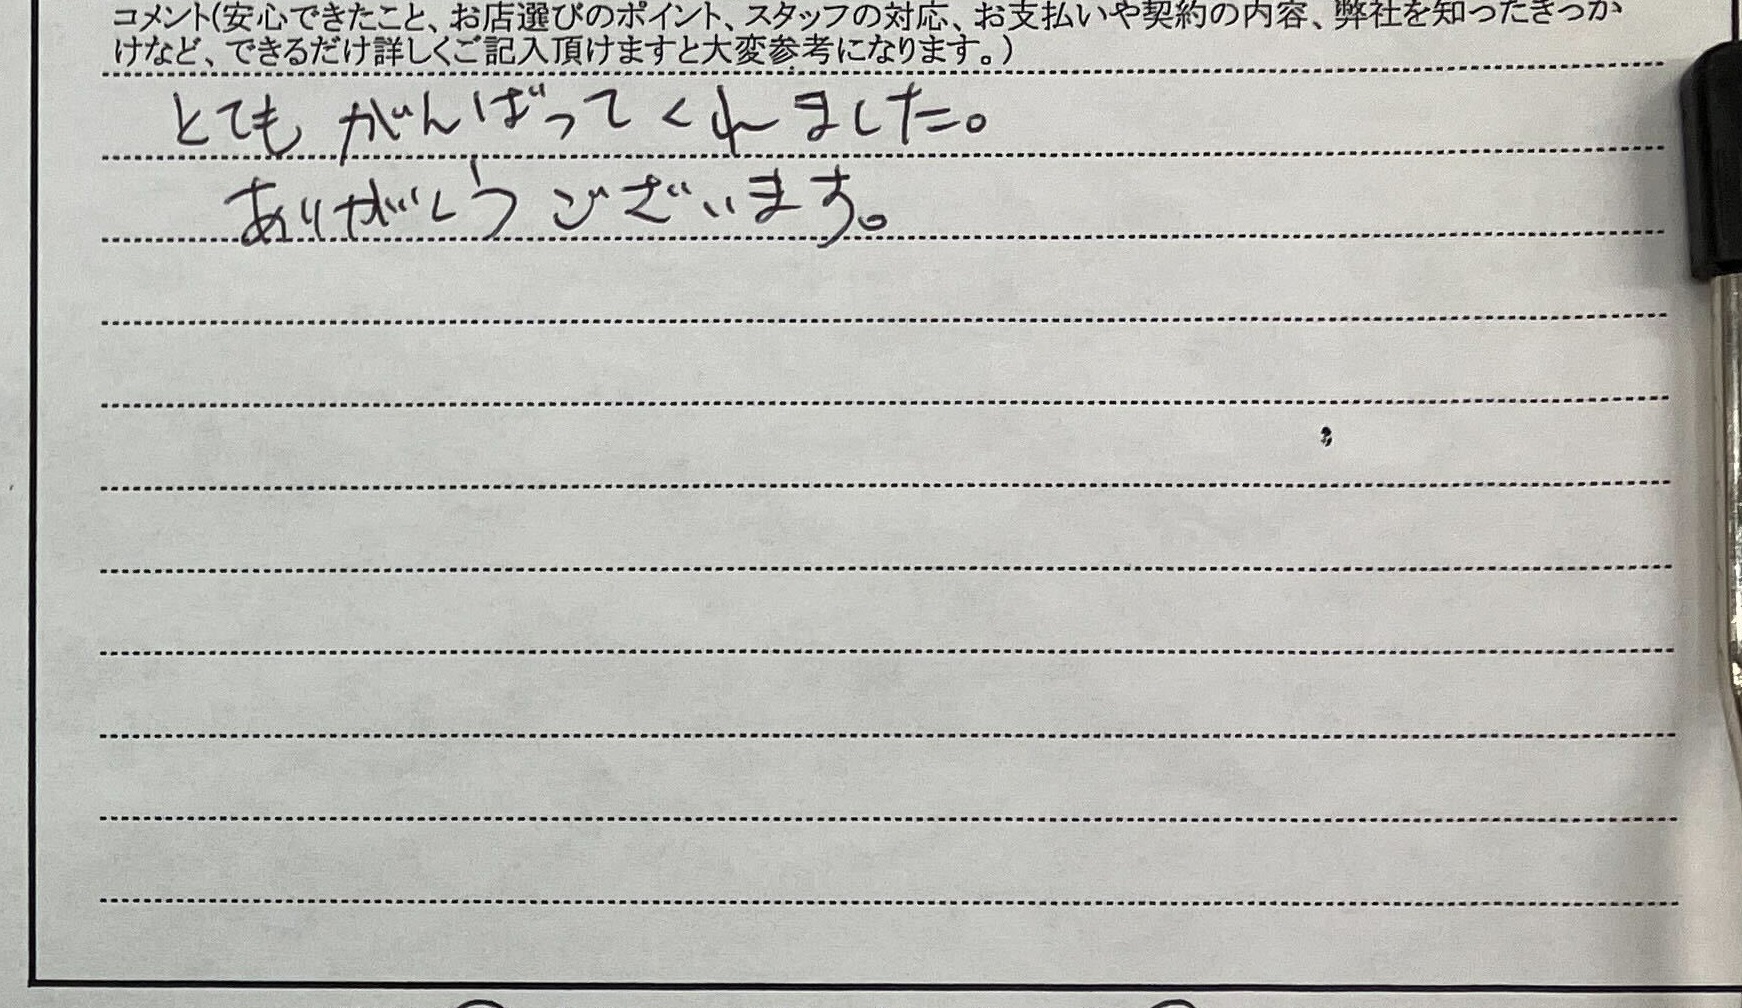 コメント(安心できたこと、お店選びのポイント、スタッフの対応、お支払いや契約の内容、弊社を知ったきっか
けなど、できるだけ詳しくご記入頂けますと大変参考になります。)
とても がんばってくれました。
ありがとうございます。